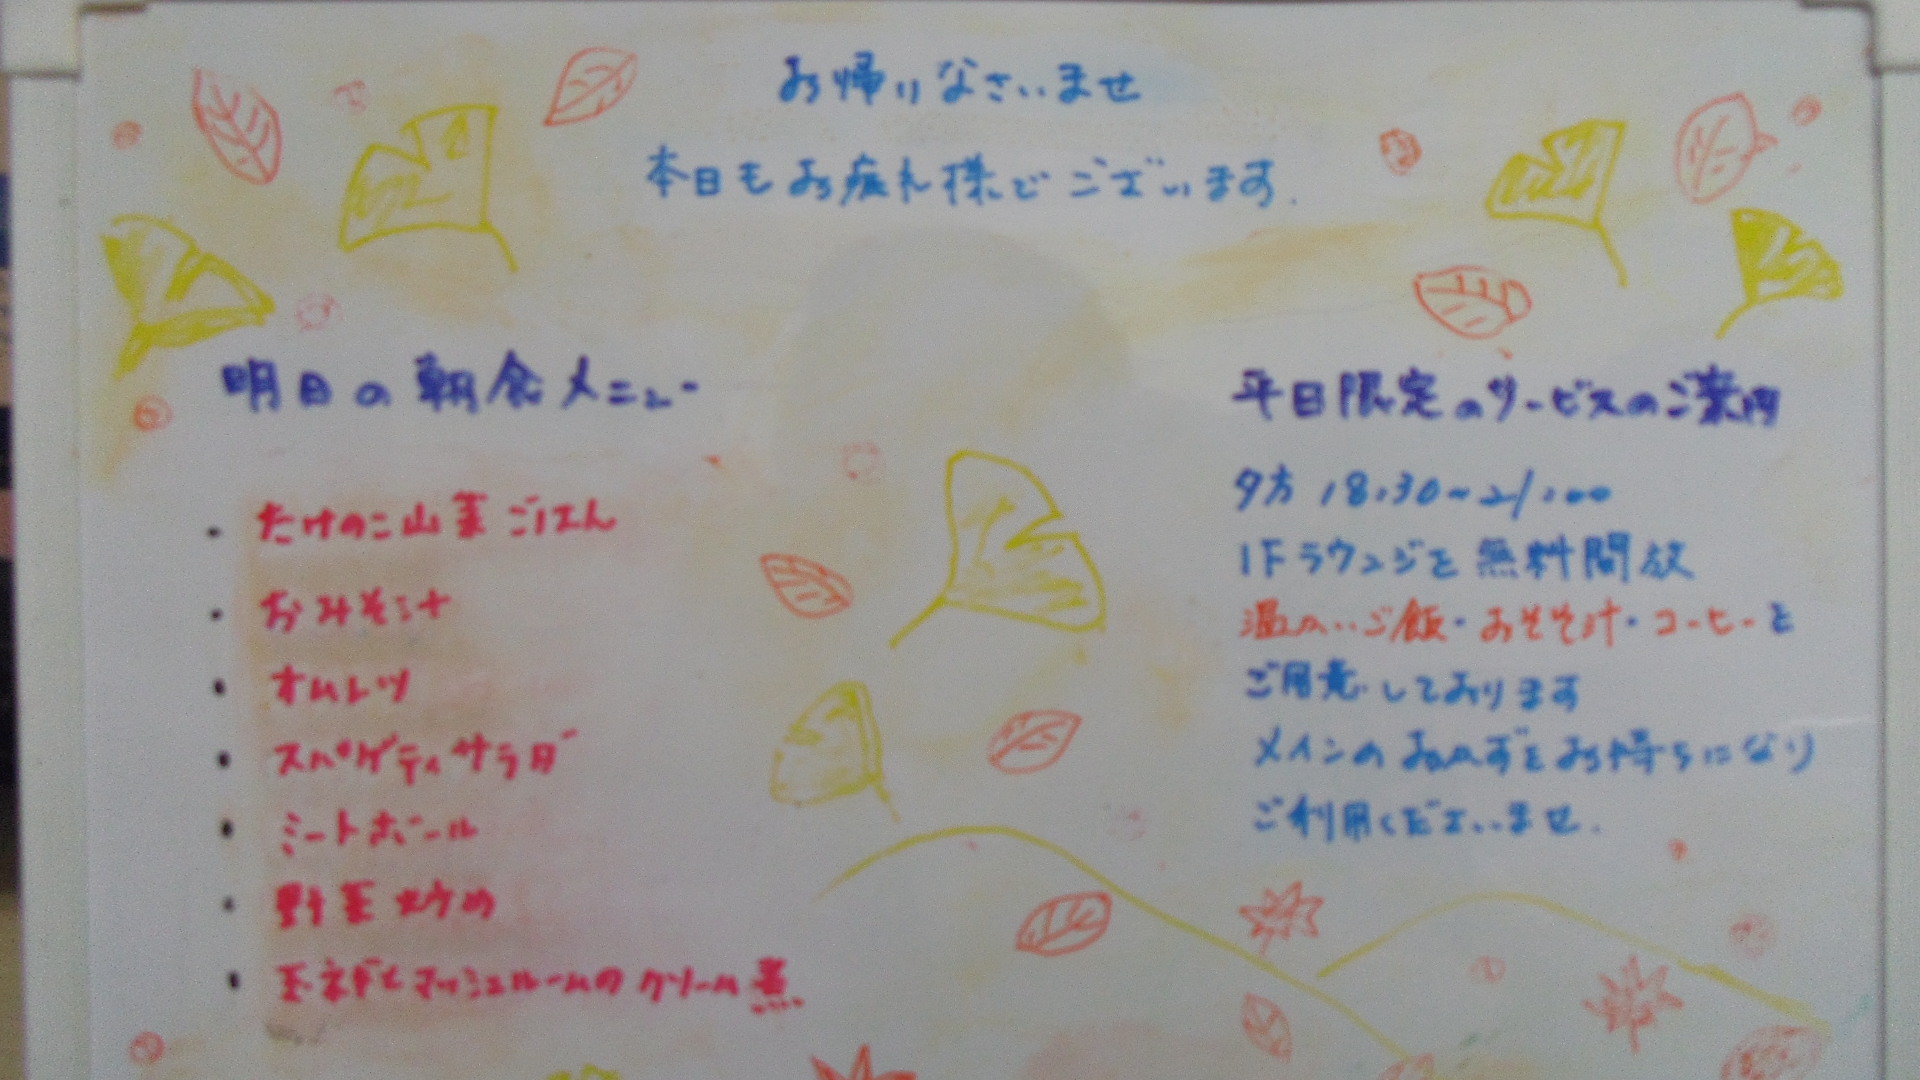 お帰りなさいませ
本日もお疲れ様でございます.
明日の朝食メニュー
・たけのこ山菜ごはん
・おみそ汁
・オムレツ
・スパゲティサラダ
・ミートボール
・野菜炒め
・玉ネギとマッシュルームのクリーム煮
平日限定のサービスのご案内
夕方 18:30~21:00
1Fラウンジを無料開放
温かいご飯・おそそ汁・コーヒーと
ご用意しております
メインのおかずをお持ちになり
ご利用くださいませ.